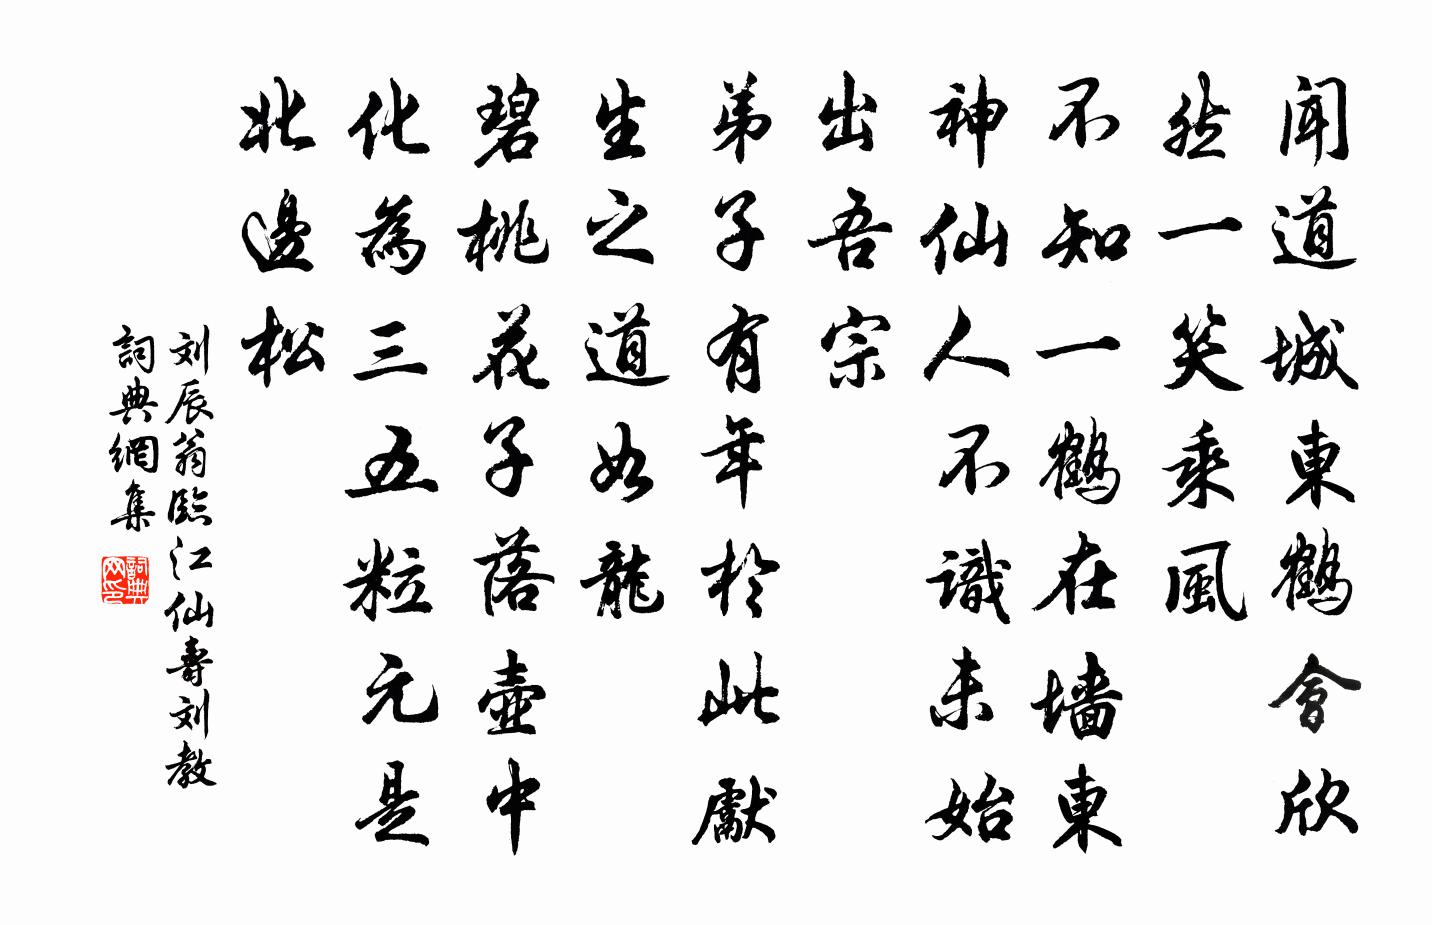 聞道城東鶴會欣
然一笑乘風
不知一鶴在墙東
神仙人不識未始
出吾宗
弟子有年於此獻
生之道如龍
碧桃花子落壺中
化為三五粒元是
北邊松
刘辰翁臨江仙壽刘教
詞典網集
詞典网印